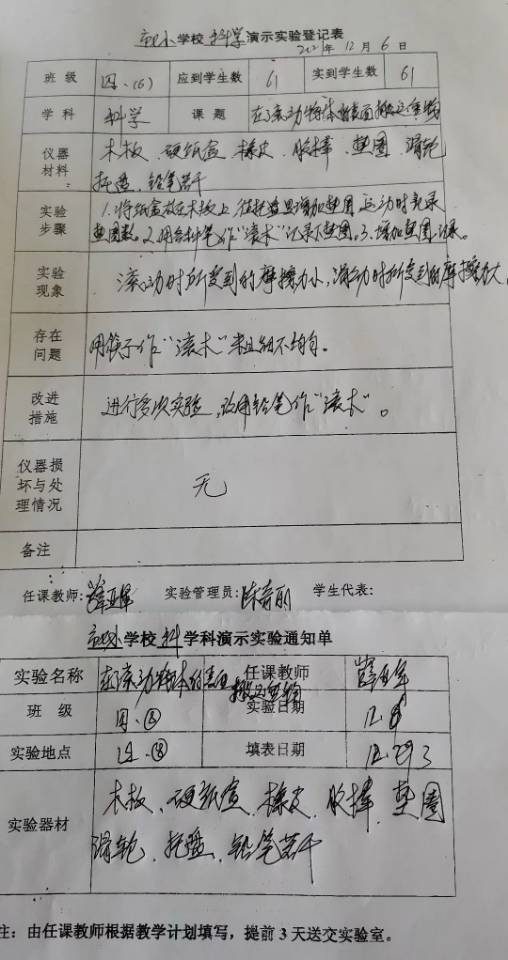 小学校 科学演示实验登记表
2021年12月6日
班 级 四.(6) 应到学生数 61 实到学生数 61
学 科 科学 课 题 在滚动物体表面搬运重物
仪器 木板、硬纸盒、橡皮、胶棒、垫圈、滑轮
材料 托盘、铅笔若干
实验 1.将纸盒放在木板上,往托盘里增加垫圈,运动时记录
步骤 垫圈数。2.用铅笔作“滚木”记录下垫圈。3.增加垫圈记录。
实验 滚动时所受到的摩擦力小,滑动时所受到的摩擦力大
现象
存在 用筷子作“滚木”粗细不均匀。
问题
改进 进行多次实验,改用铅笔作“滚木”。
措施
仪器损
坏与处 无
理情况
备注
任课教师: 实验管理员: 学生代表:
小学校 科 学科演示实验通知单
实验名称 在滚动物体的表面搬运重物 任课教师
班 级 四.⑥ 实验日期 12.6
实验地点 填表日期
实验器材 木板、硬纸盒、橡皮、胶棒、垫圈
滑轮、托盘、铅笔若干
注：由任课教师根据教学计划填写，提前 3 天送交实验室。